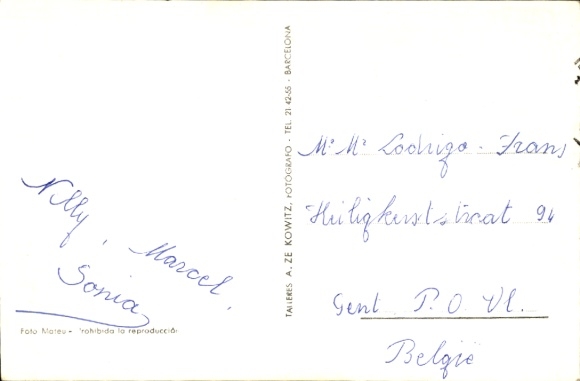 Nelly, Marcel,
Sonia
Foto Mateo - Prohibida la reproducción
TALLERES A. ZE KOWITZ, FOTOGRAFO - TEL. 21 42-55 - BARCELONA
Mr Mr Lodrigo - Frans
Heiligkerststraat 94
Gent P. O Vl.
België